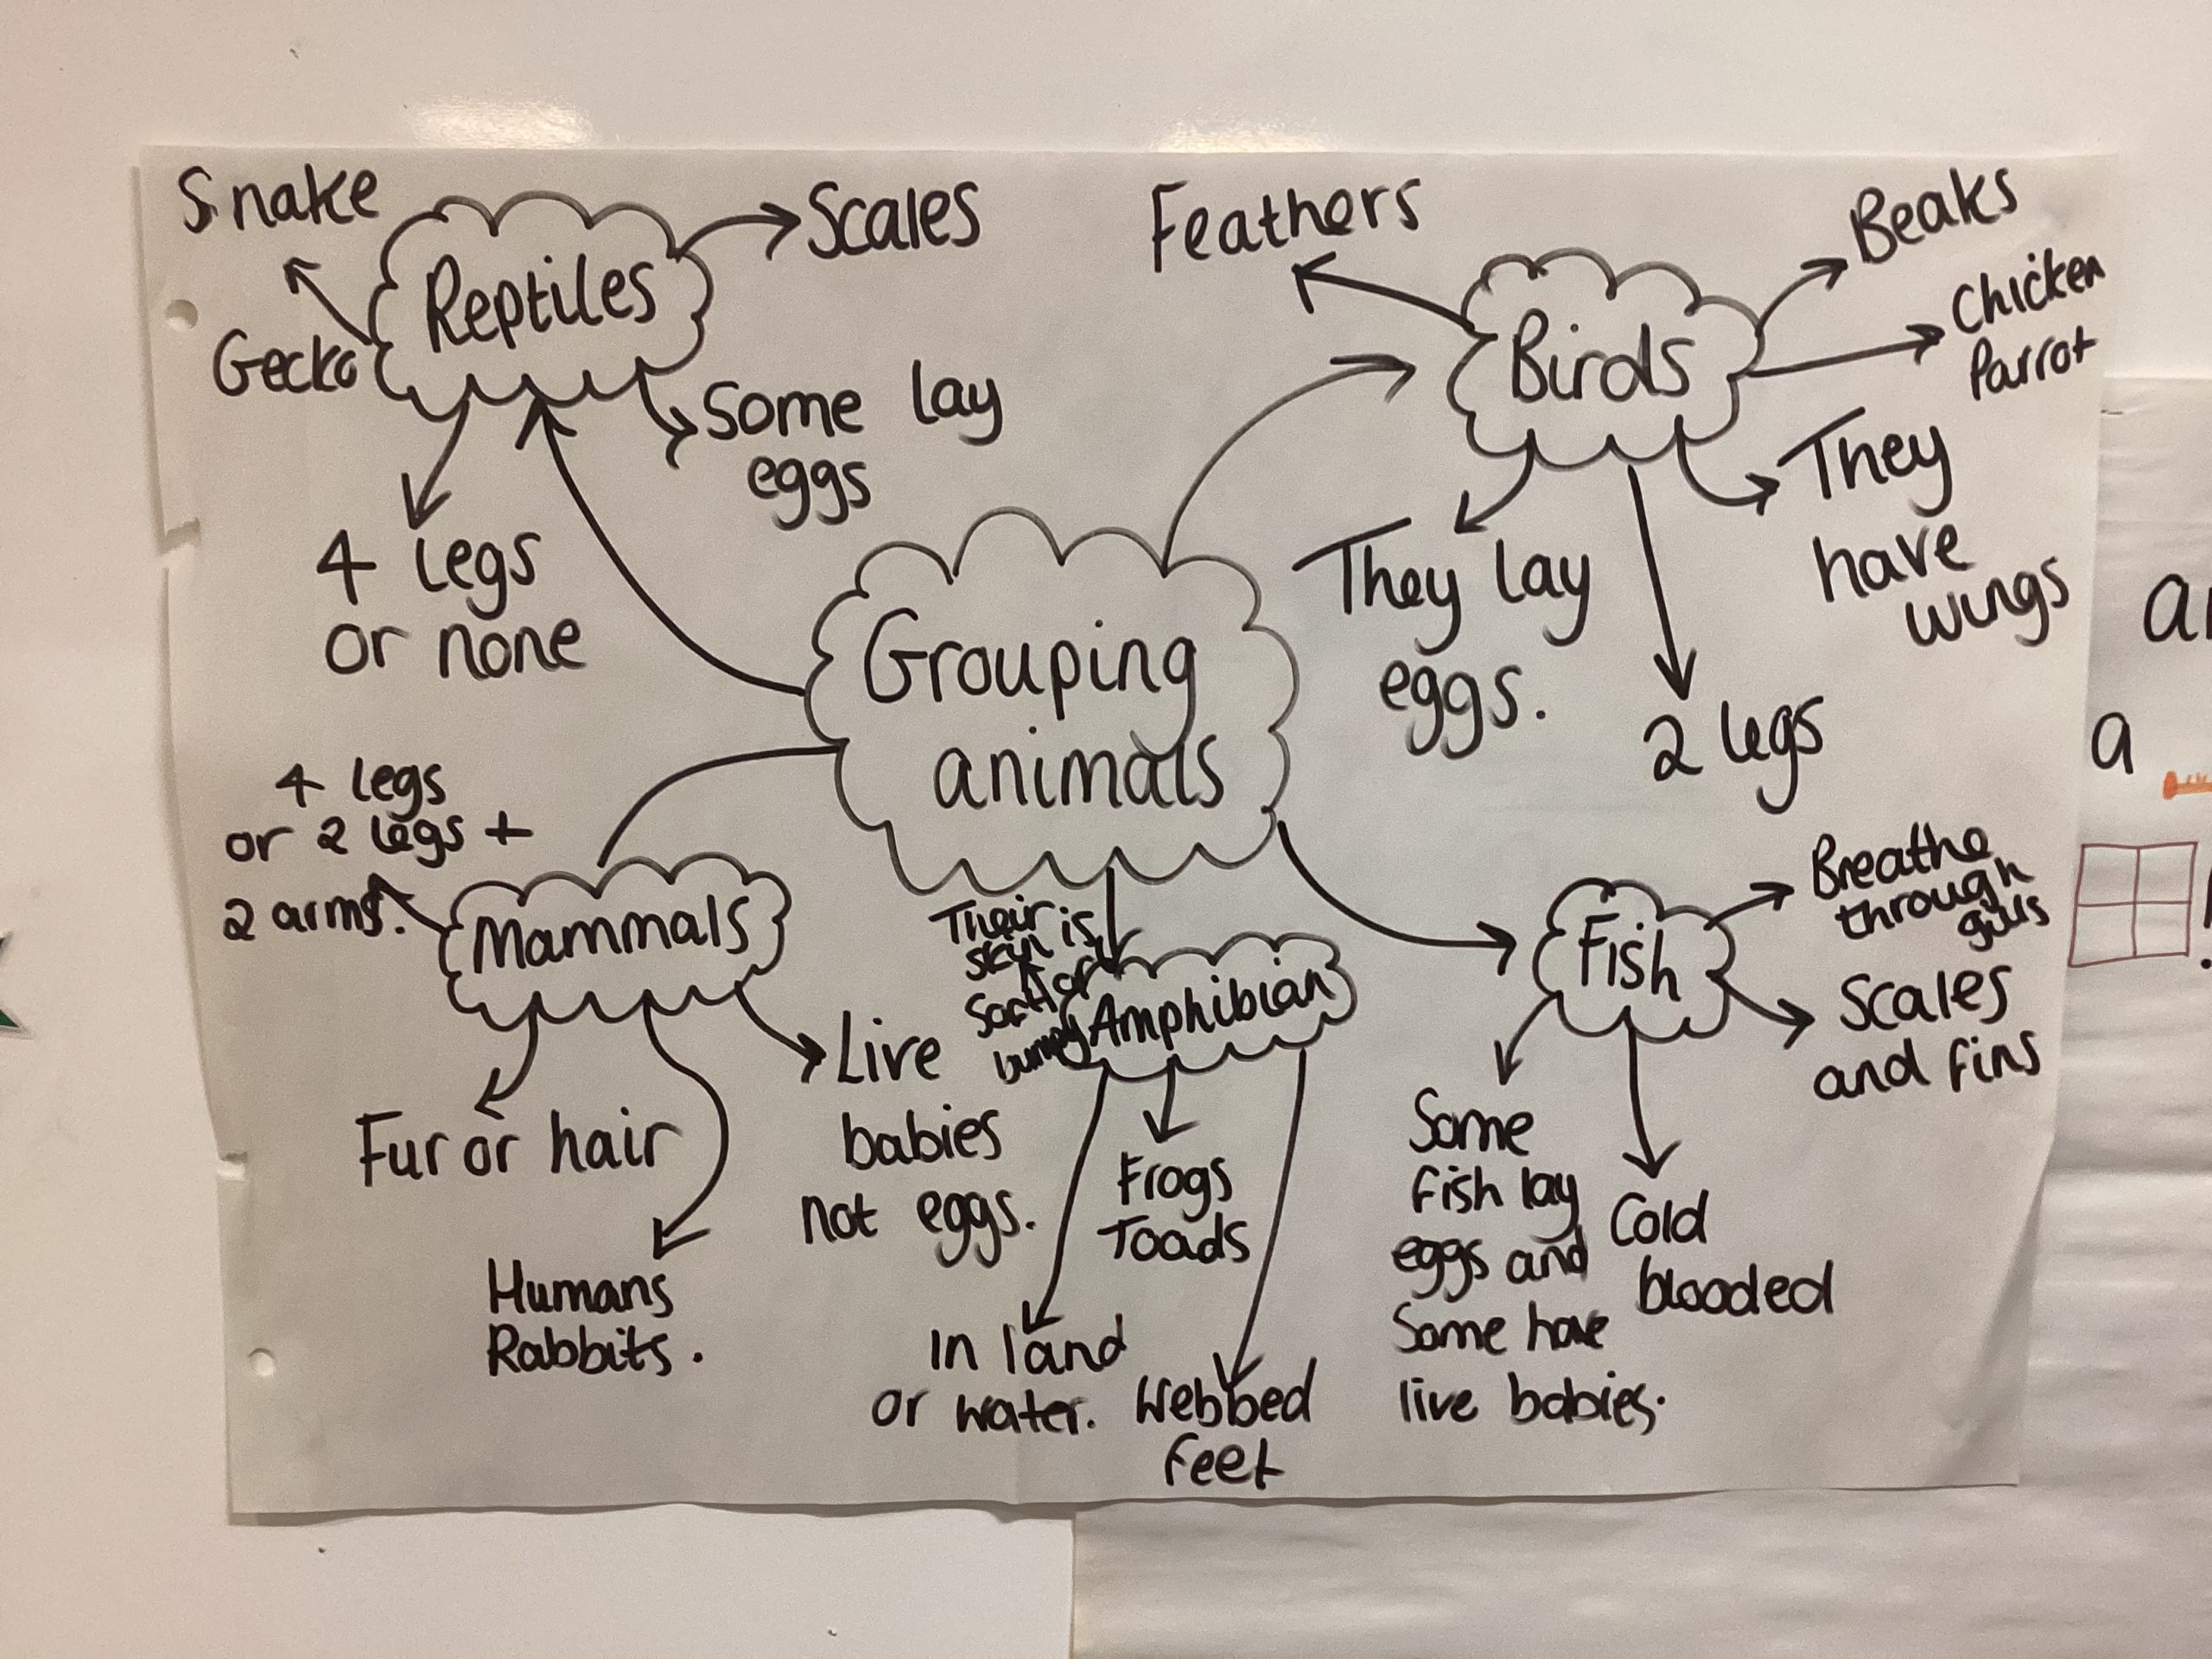 Snake
Gecko
Reptiles
Scales
Some lay
eggs
4 legs
or none
Feathers
Birds
Beaks
Chicken
Parrot
They
have
wings
They lay
eggs.
2 legs
Grouping
animals
4 legs
or 2 legs +
2 arms.
Mammals
Fur or hair
Humans
Rabbits.
Live
babies
not eggs.
Their
skin is
soft or
bumpy
Amphibian
Frogs
Toads
In land
or water.
Webbed
feet
Fish
Breathe
through
gills
Scales
and fins
Some
fish lay
eggs and
Some have
live babies.
Cold
blooded
a